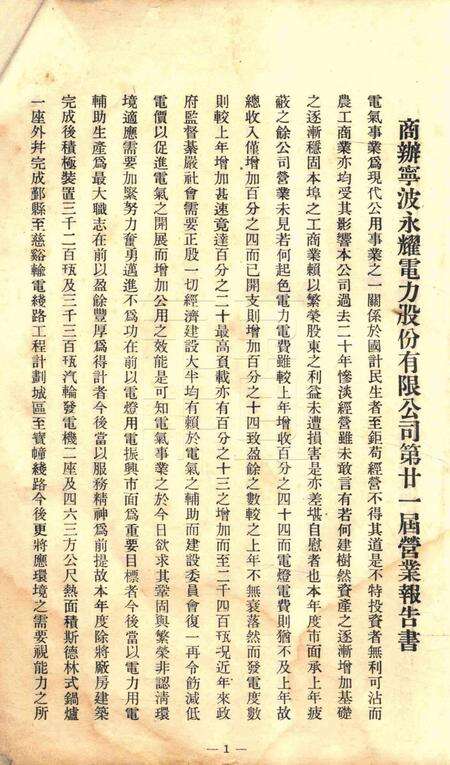 商辦寧波永耀電力股份有限公司第廿一屆營業報告書
電氣事業爲現代公用事業之一關係於國計民生者至鉅苟經營不得其道是不特投資者無利可沾而
農工商業亦均受其影響本公司過去二十年慘淡經營雖未敢言有若何建樹然資產之逐漸增加基礎
之逐漸穩固本埠之工商業賴以繁榮股東之利益未遭損害是亦差堪自慰者也本年度市面承上年疲
蔽之餘公司營業未見若何起色電力電費雖較上年增收百分之四十四而電燈電費則猶不及上年故
總收入僅增加百分之四而已開支則增加百分之十四致盈餘之數較之上年不無衰落然而發電度數
則較上年增加甚速竟達百分之二十最高負載亦有百分之十三之增加而至二千四百瓩况近年來政
府監督綦嚴社會需要正殷一切經濟建設大半均有賴於電氣之輔助而建設委員會復一再令飭減低
電價以促進電氣之開展而增加公用之效能是可知電氣事業之於今日欲求其鞏固與繁榮非認淸環
境適應需要加緊努力奮勇邁進不爲功在前以電燈用電振興市面爲重要目標者今後當以電力用電
輔助生產爲最大職志在前以盈餘豐厚爲得計者今後當以服務精神爲前提故本年度除將廠房建築
完成後積極裝置三千二百瓩及三千三百瓩汽輪發電機二座及四六三方公尺熱面積斯德林式鍋爐
一座外幷完成鄞縣至慈谿輸電綫路工程計劃城區至寶幢綫路今後更將應環境之需要視能力之所
— 1 —